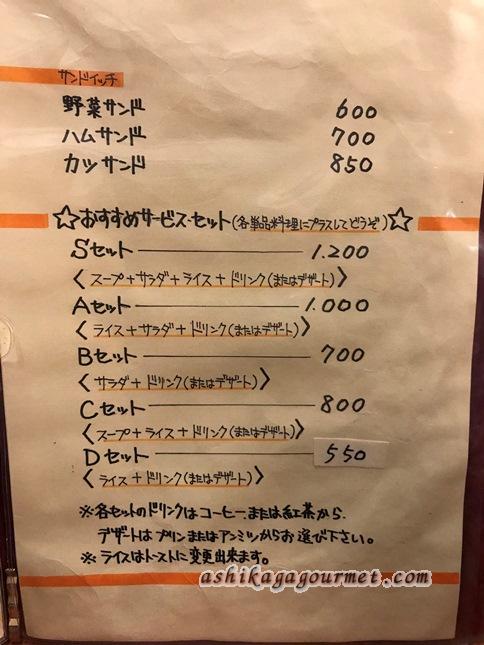 サンドイッチ
野菜サンド 600
ハムサンド 700
カツサンド 850
☆おすすめサービス・セット(各単品料理にプラスしてどうぞ)☆
Sセット 1.200
〈スープ+サラダ+ライス+ドリンク(またはデザート)〉
Aセット 1.000
〈ライス+サラダ+ドリンク(またはデザート)〉
Bセット 700
〈サラダ+ドリンク(またはデザート)〉
Cセット 800
〈スープ+ライス+ドリンク(またはデザート)〉
Dセット 550
〈ライス+ドリンク(またはデザート)〉
※各セットのドリンクはコーヒーまたは紅茶から、
デザートはプリンまたはアンミツからお選び下さい。
※ライスはトーストに変更出来ます。
ashikagagourmet.com